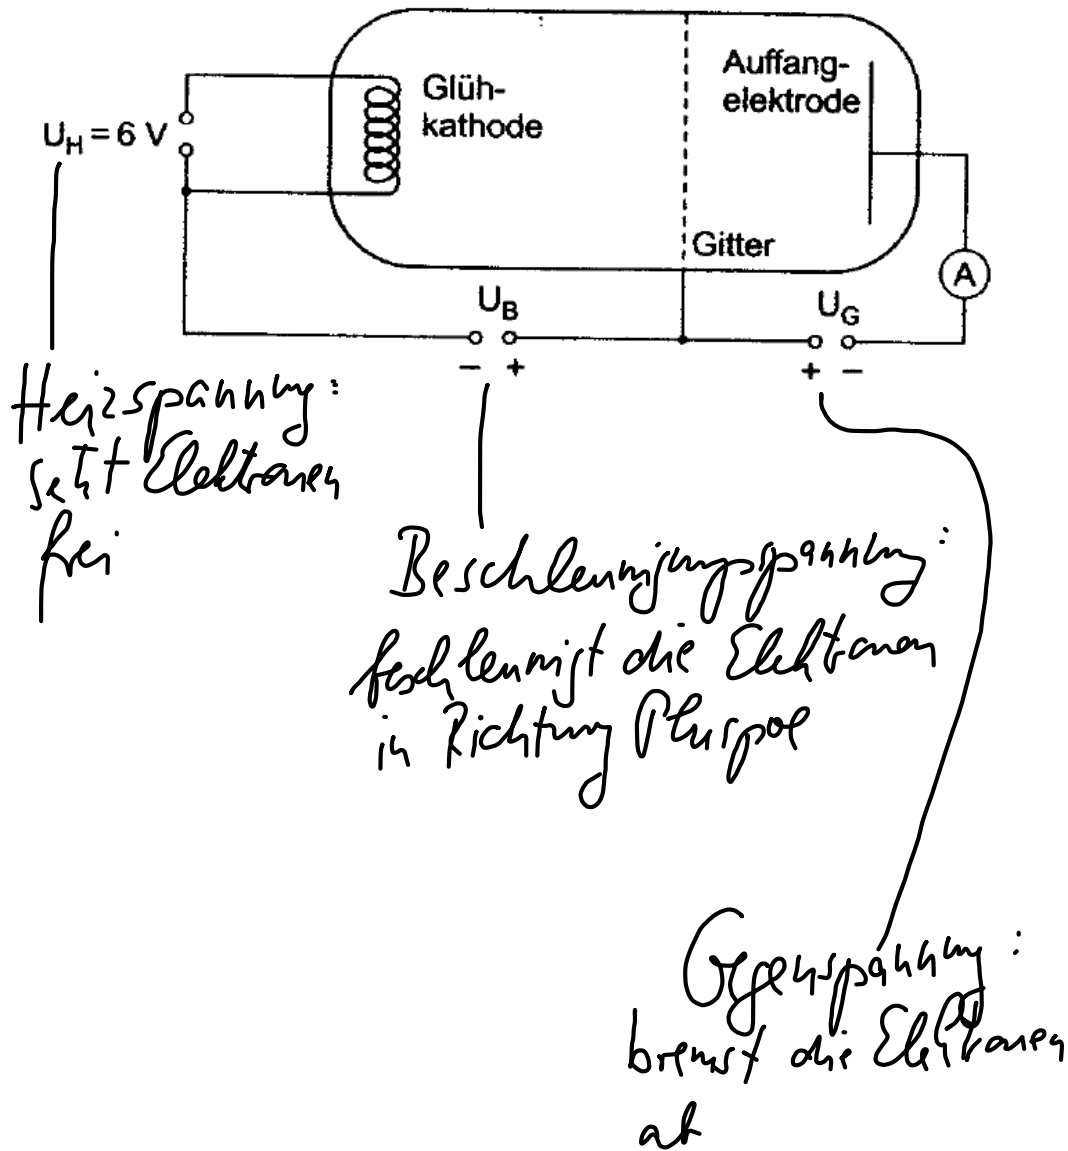 Glüh-
kathode
Auffang-
elektrode
U_H = 6 V
Gitter
A
U_B
U_G
− +
+ −
Heizspannung:
setzt Elektronen
frei
Beschleunigungsspannung:
beschleunigt die Elektronen
in Richtung Pluspol
Gegenspannung:
bremst die Elektronen
ab